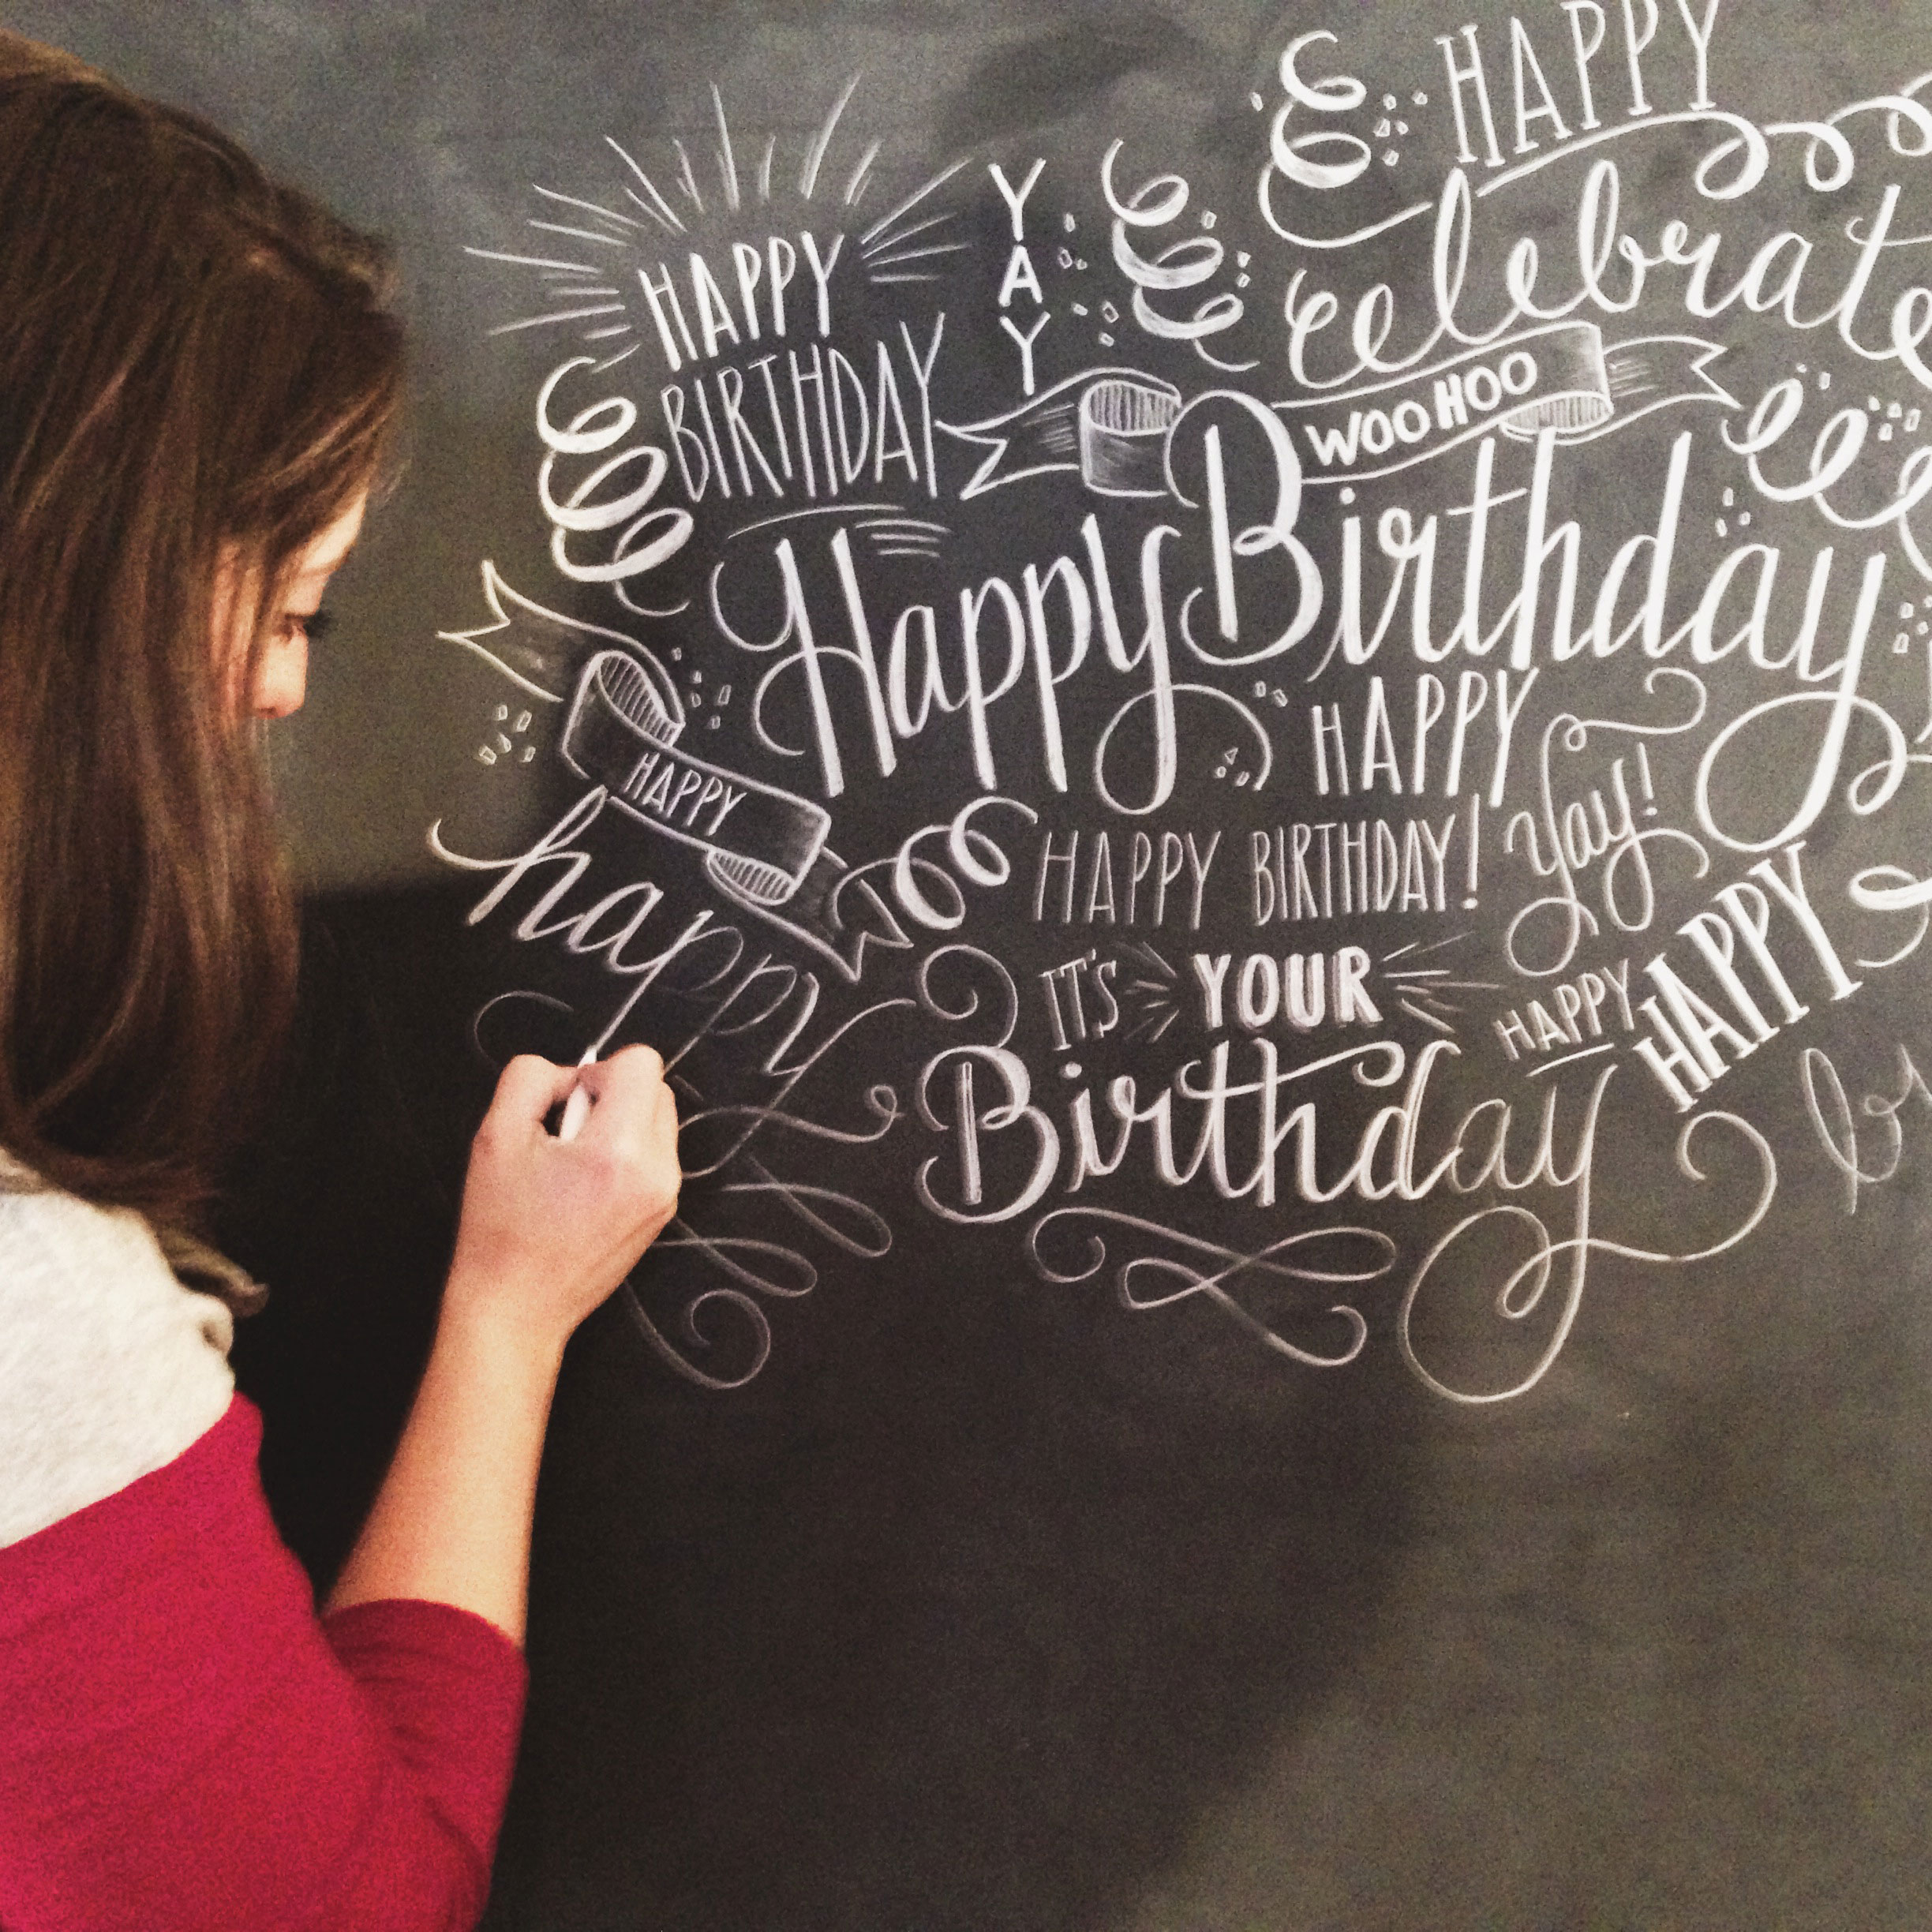 HAPPY
celebrate
HAPPY
BIRTHDAY
YAY
WOOHOO
Happy Birthday
HAPPY
HAPPY
Yay!
happy
HAPPY BIRTHDAY!
IT'S YOUR
Birthday
HAPPY
HAPPY